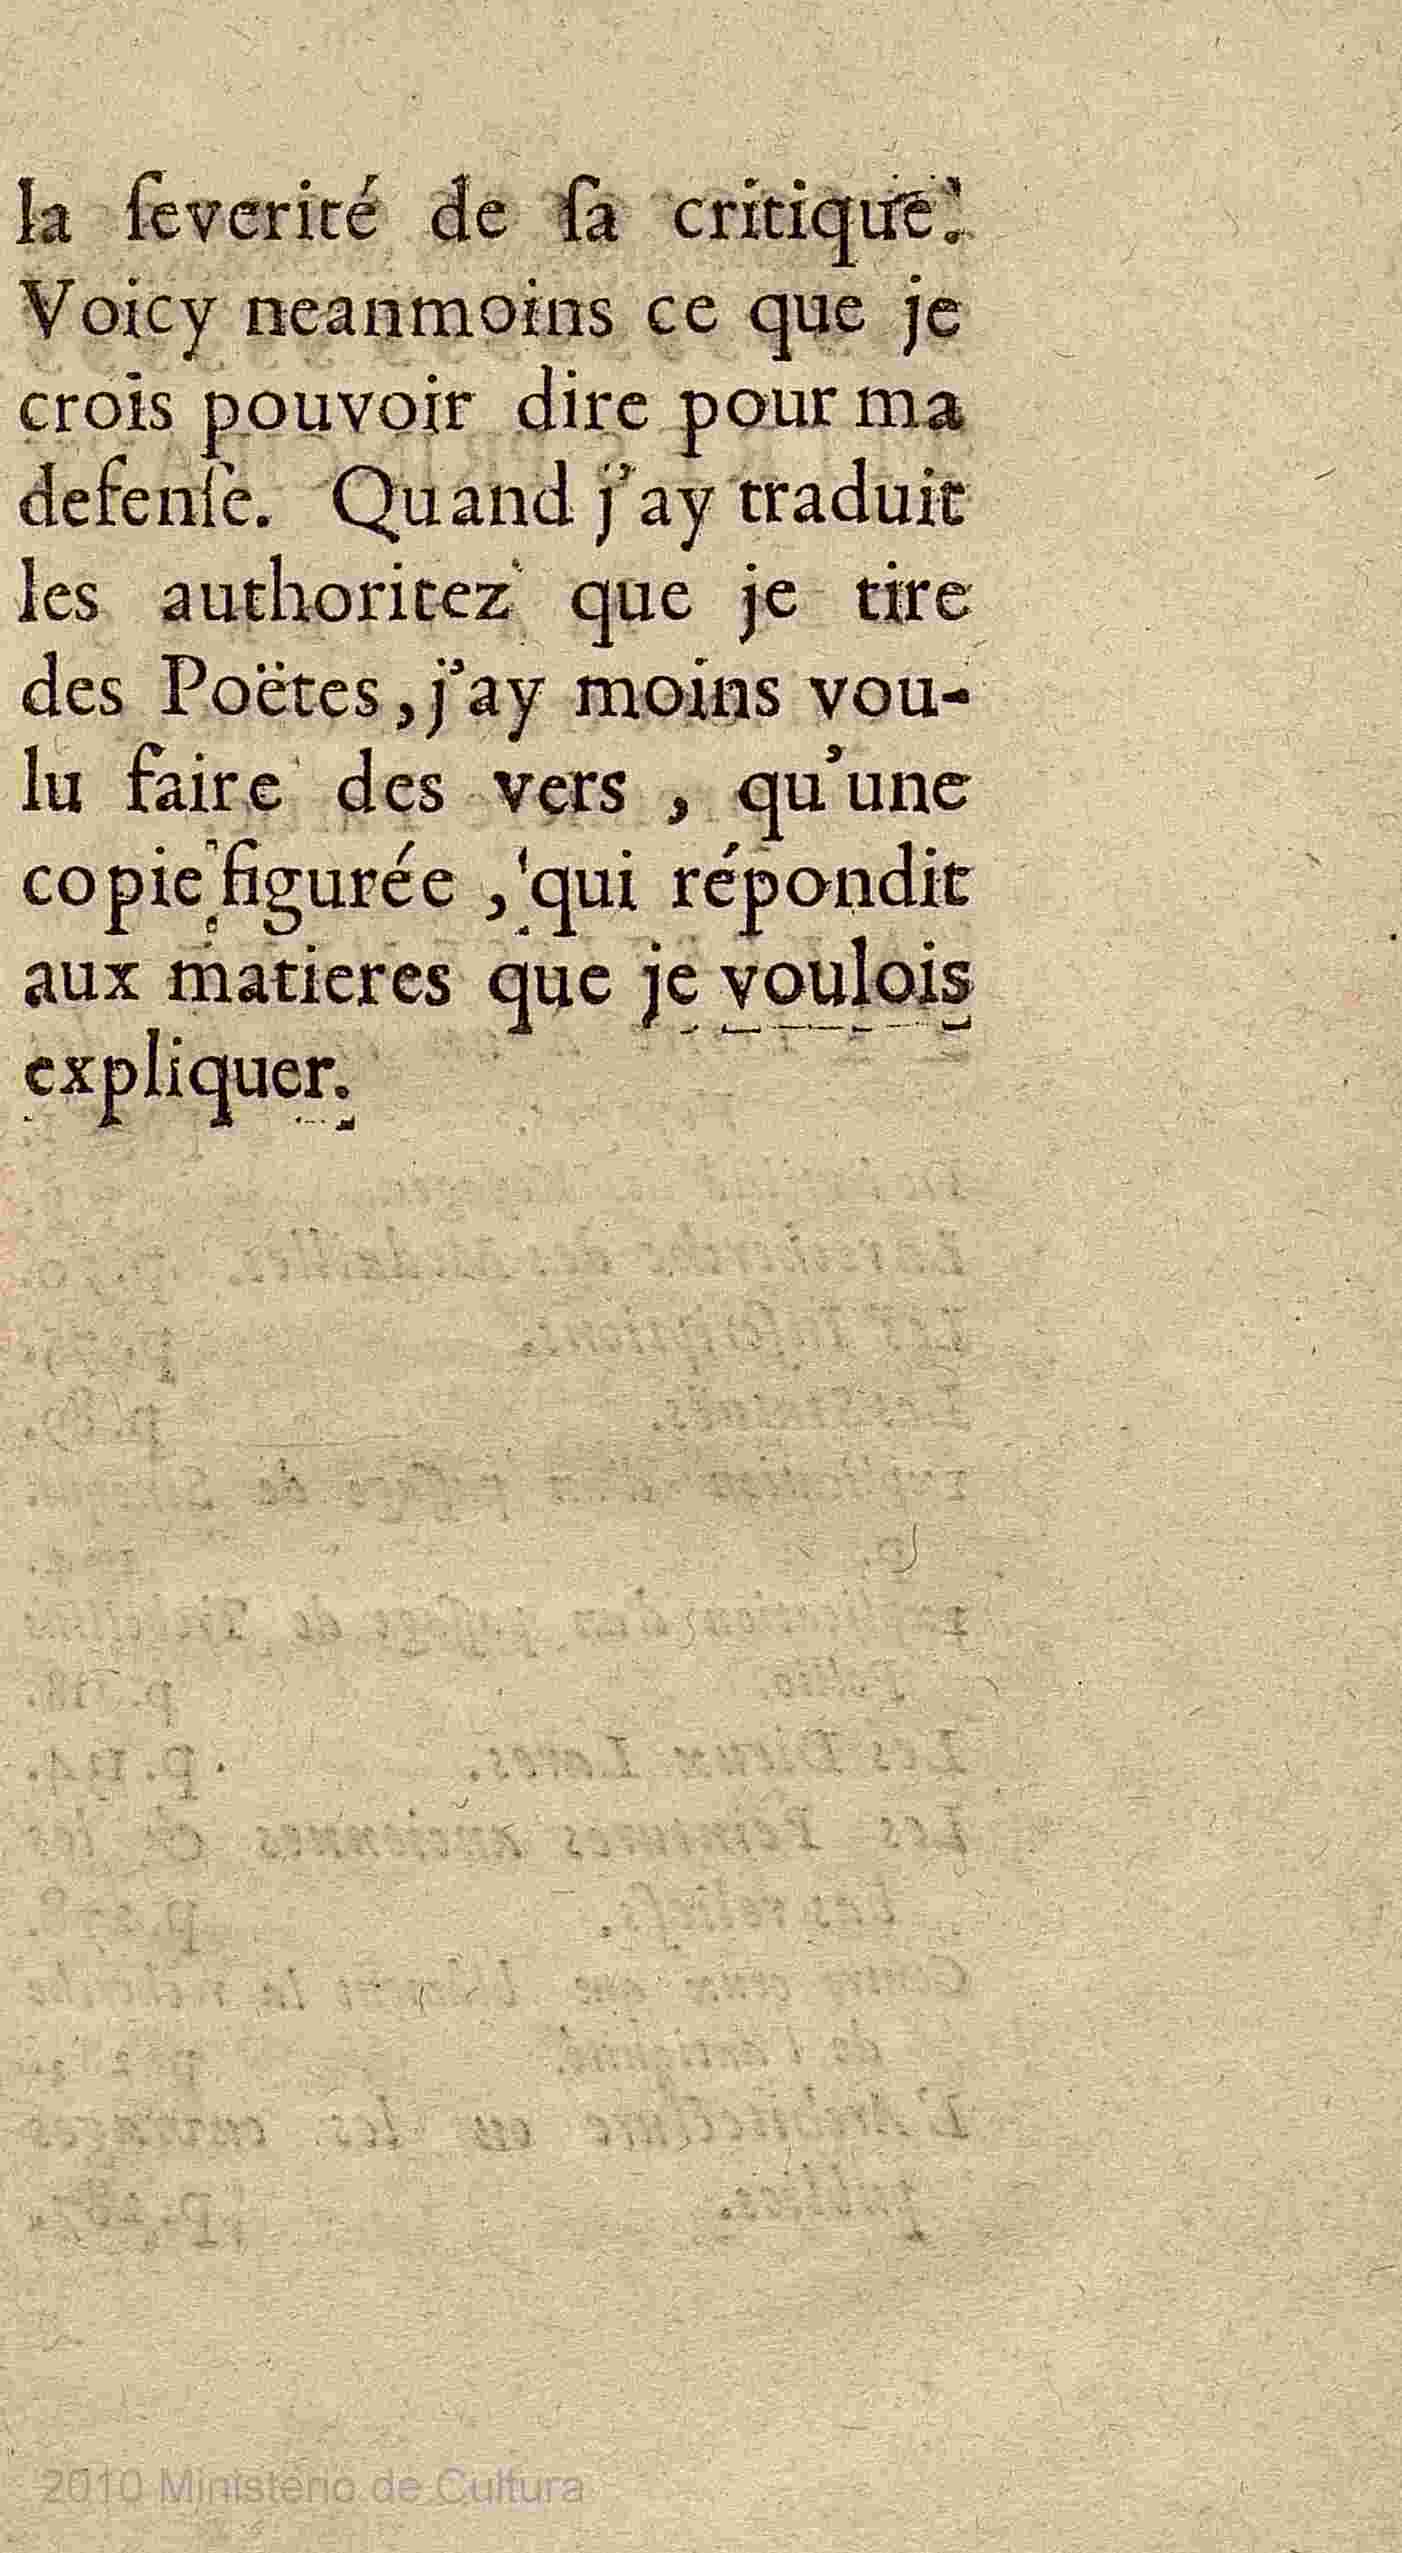 la ſeverité de ſa critique.
Voicy neanmoins ce que je
crois pouvoir dire pour ma
defenſe. Quand j'ay traduit
les authoritez que je tire
des Poëtes, j'ay moins vou-
lu faire des vers , qu'une
copie figurée , qui répondit
aux matieres que je voulois
expliquer.
2010 Ministério de Cultura